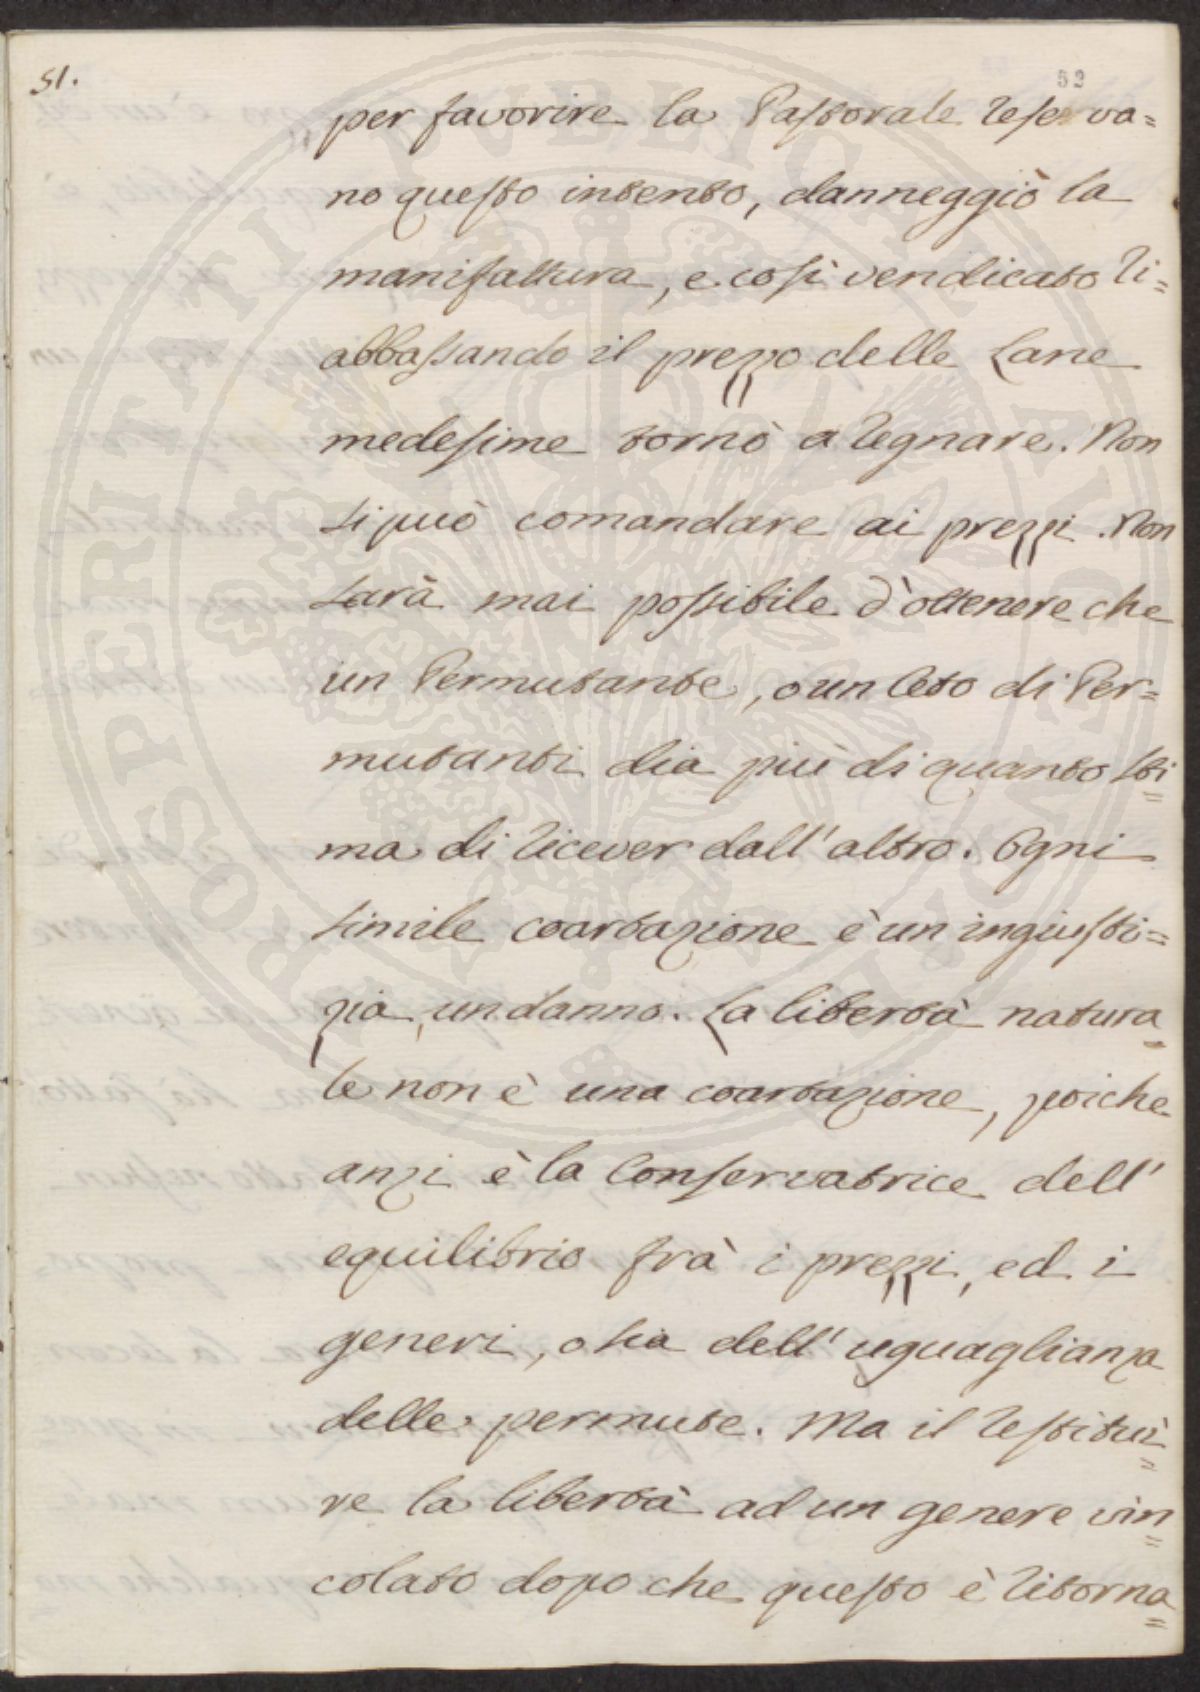 51.
52
per favorire la Pastorale reserva=
no questo intento, danneggiò la
manifattura, e così vendicato ri=
abbassando il prezzo delle Lane
medesime tornò a regnare. Non
si può comandare ai prezzi. Non
sarà mai possibile d'ottenere che
un Permutante, o un Ceto di Per=
mutanti dia più di quanto sti=
ma di ricever dall'altro. Ogni
simile coartazione è un ingiusti=
zia, un danno. La libertà natura=
le non è una coartazione, poiche
anzi è la Conservatrice dell'
equilibrio frà i prezzi, ed i
generi, o sia dell'uguaglianza
delle permute. Ma il restitui=
re la libertà ad un genere vin=
colato dopo che questo è ritorna=
PROSPERITATI PVBLICAE AVGENDAE